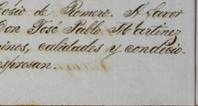 osio de Romero. A favor
Don José Pablo Martinez
nes, calidades y condicio-
espresan.